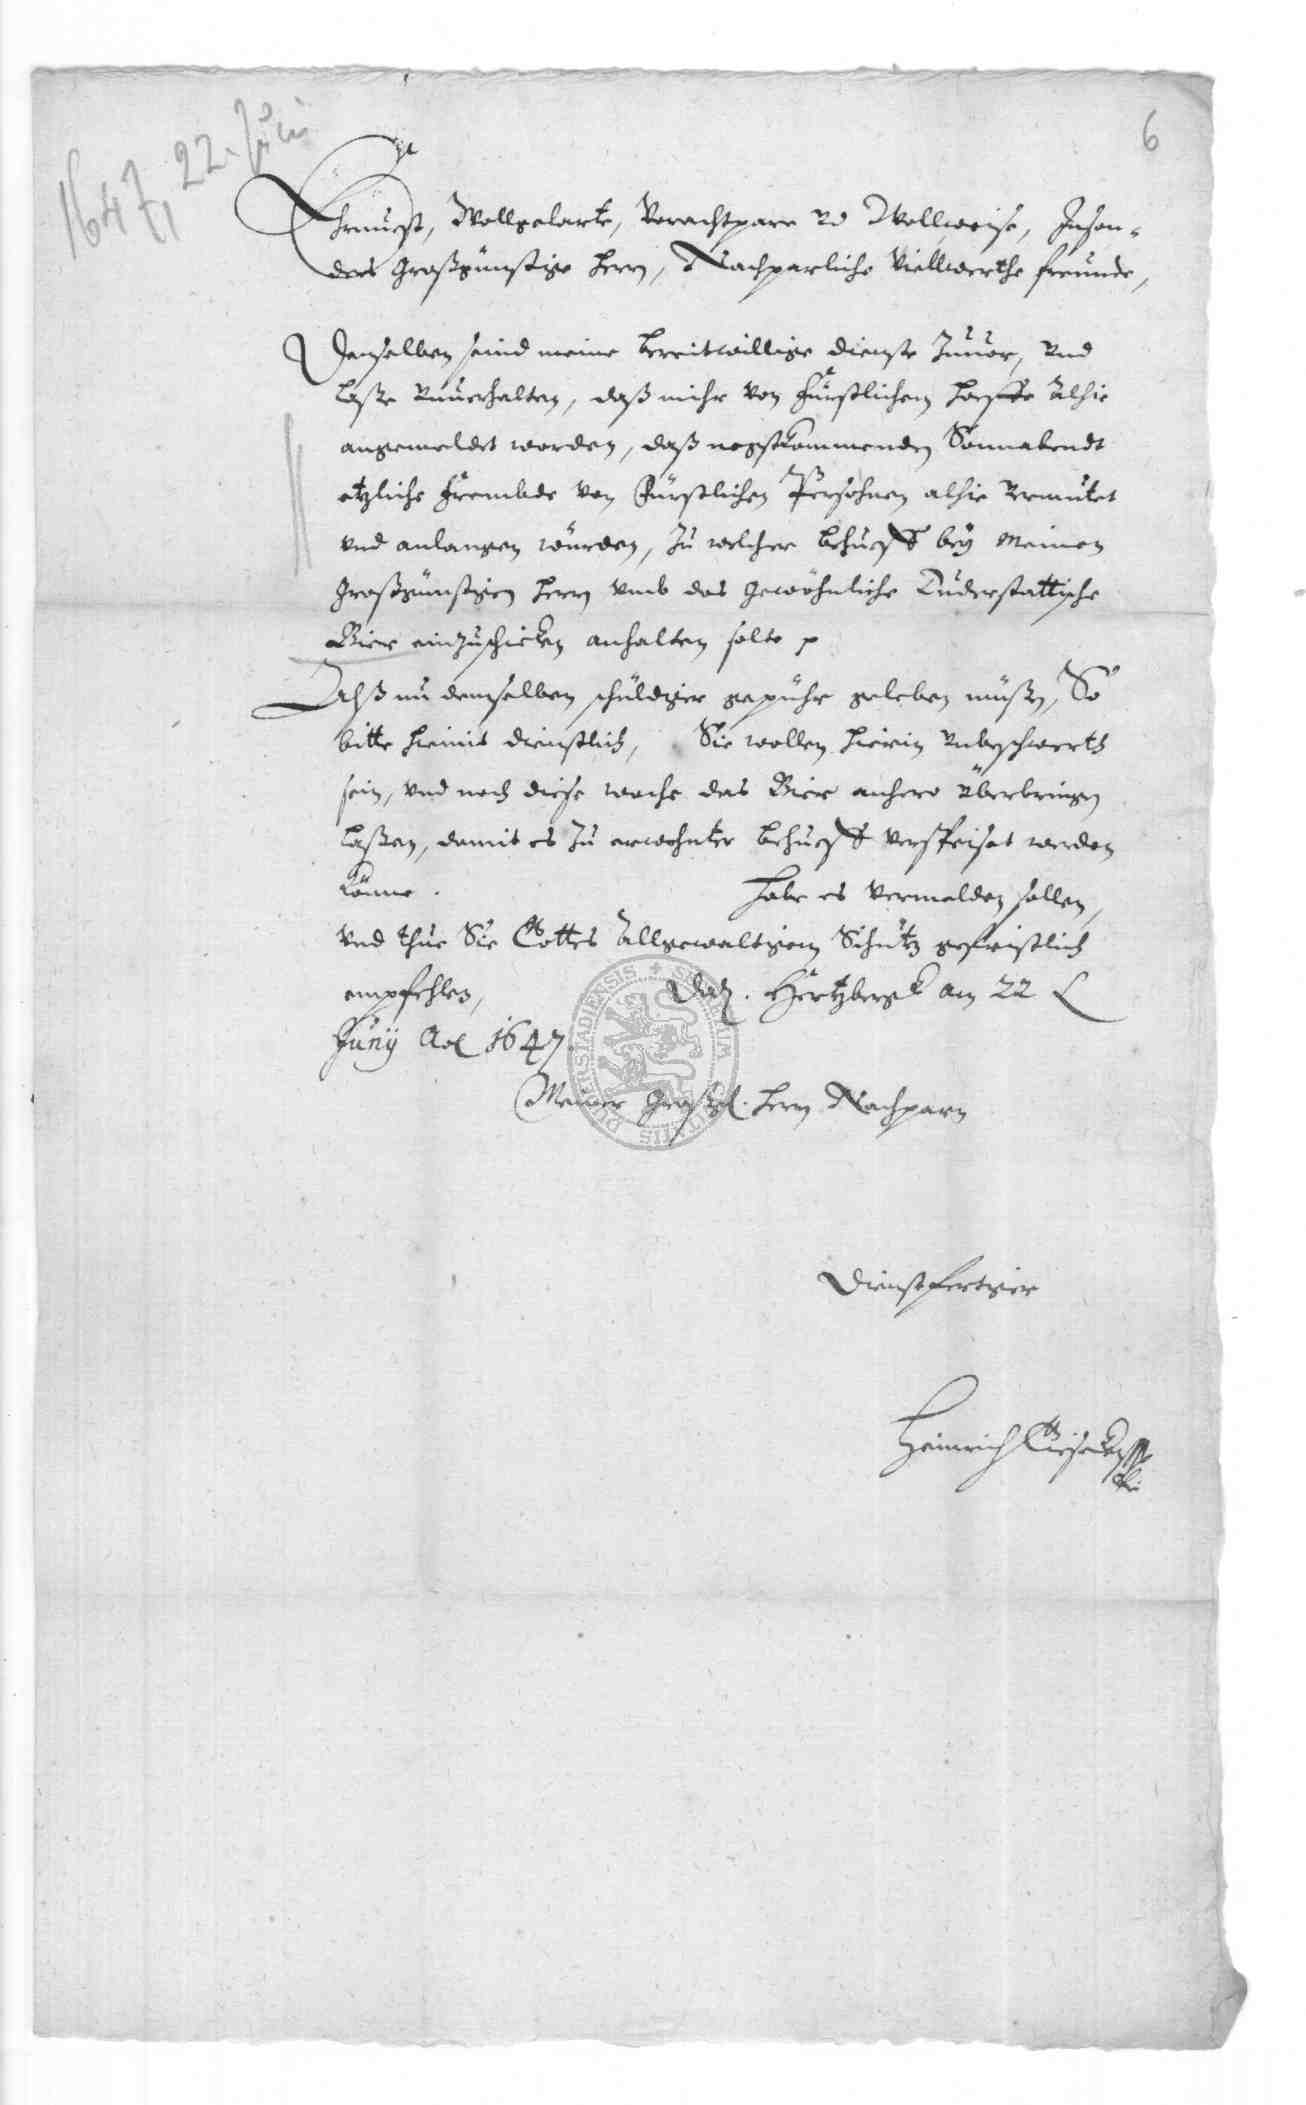 1647, 22. Juni
6
Ehrnuest, Wollgelarte, Vorachtpare vd Wollweise, Inson-
ders Großgünstige Hern, Nachparliche Viellwerthe freunde,
Denselben seind meine bereitwillige dienste Zuuor, Vnd
laße Vnuerhalten, daß mihr von Fürstlichem Hoeffe Alhie
angemeldet worden, daß negstkommenden Sonnabendt
etzliche frembde von Fürstlichen Persohnen alhie Vermutet
vnd anlangen würden, Zu welcher behueff bey Meinen
Großgünstigen Hern vmb das gewöhnliche Duderstattische
Bier einzuschicken anhalten solte p
Alß nu demselben schuldiger gepühr geleben müßen, So
bitte hiemit dienstlich, Sie wollen hierin Vnbeschwerth
sein, vnd noch diese woche das Bier anhero überbringen
laßen, damit es Zu erwehnter behueff verspeiset werden
könne. Habe es vermelden sollen,
vnd thue Sie Gottes Allgewaltigem Schutz
empfehlen, Dat. Hertzbergk am 22
Juny Ao 1647.
Meiner Großg. Hern Nachparn
SIGILLUM CIVITATIS DUDERSTADIENSIS
Dienstfertiger
Heinrich Gieseken